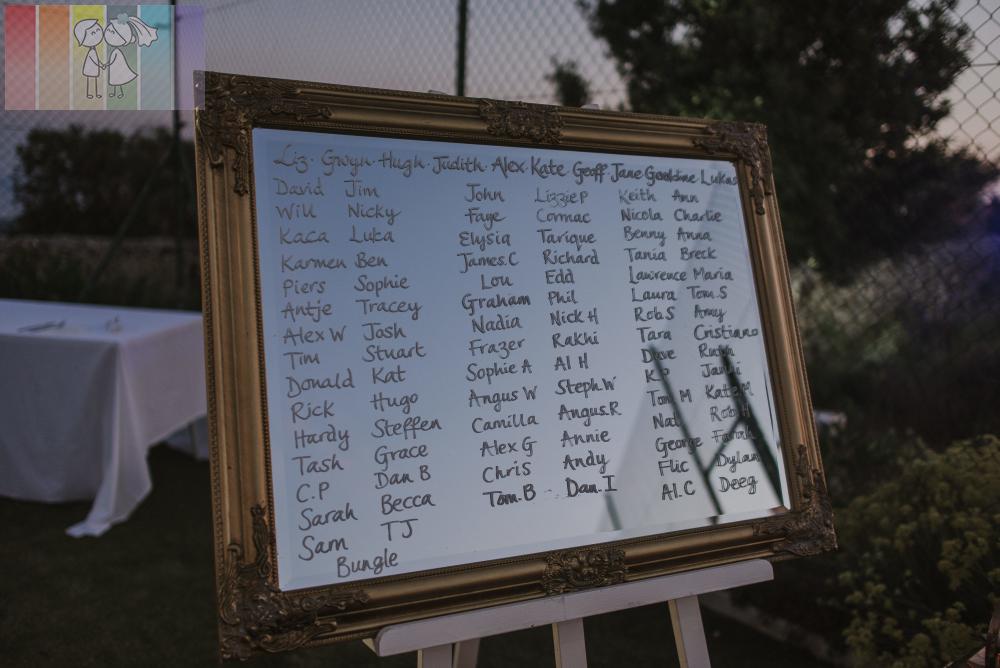 Liz · Gwyn · Hugh · Judith · Alex · Kate Geoff Jane Geraldine Lukas
David Jim John Lizzie P Keith Ann
Will Nicky Faye Cormac Nicola Charlie
Kaca Luka Elysia Tarique Benny Anna
Karmen Ben James.C Richard Tania Breck
Piers Sophie Lou Edd Lawrence Maria
Antje Tracey Graham Phil Laura Tom.S
Alex W Josh Nadia Nick H Rob S Amy
Tim Stuart Frazer Rakhi Tara Cristiano
Donald Kat Sophie A Al H Dave Ruth
Rick Hugo Angus W Steph.W
Hardy Steffen Camilla Angus.R Tom M Kate M
Tash Grace Alex G Annie Rob H
C.P Dan B Chris Andy George Farah
Sarah Becca Tom.B - Dan.I Flic Dylan
Sam TJ Al.C Deeg
Bungle